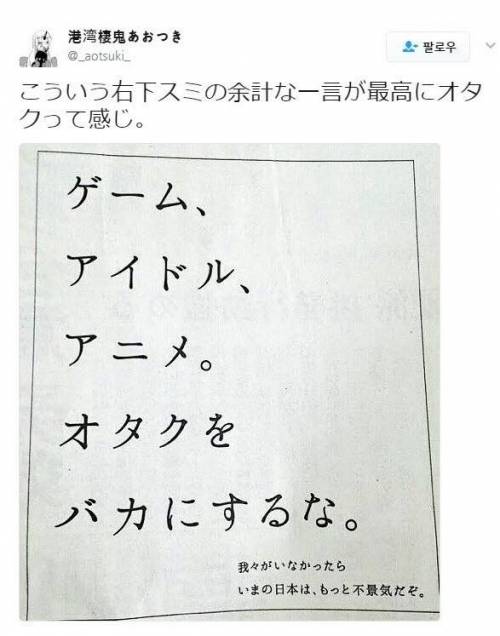 港湾棲鬼あおつき
@_aotsuki_
팔로우
こういう右下スミの余計な一言が最高にオタ
クって感じ。
ゲーム、
アイドル、
アニメ。
オタクを
バカにするな。
我々がいなかったら
いまの日本は、もっと不景気だぞ。